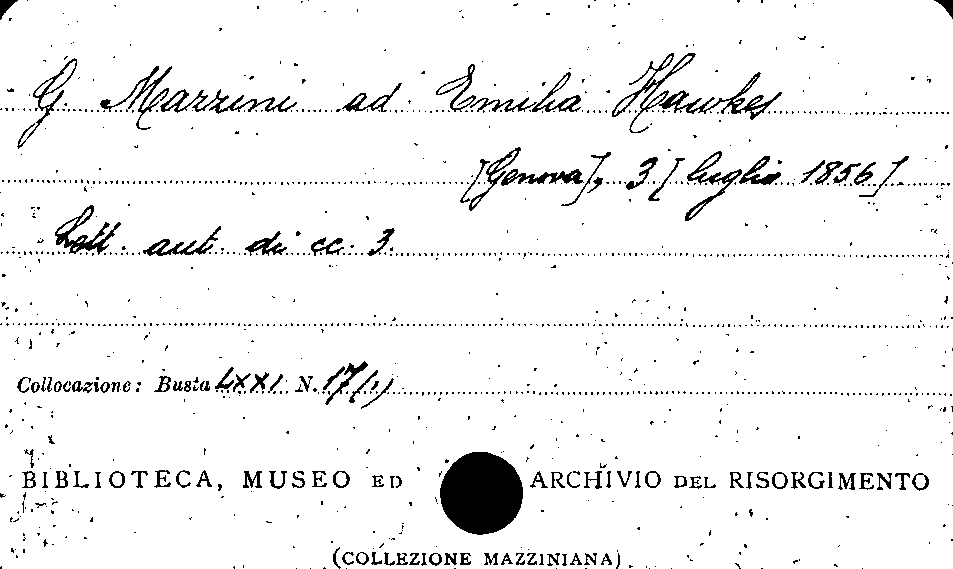 G. Mazzini ad Emilia Hawkes
[Genova], 3 [luglio 1856].
Lett. aut. di cc. 3.
Collocazione: Busta LXXI N. 17/1)
BIBLIOTECA, MUSEO ED ARCHIVIO DEL RISORGIMENTO
(COLLEZIONE MAZZINIANA)